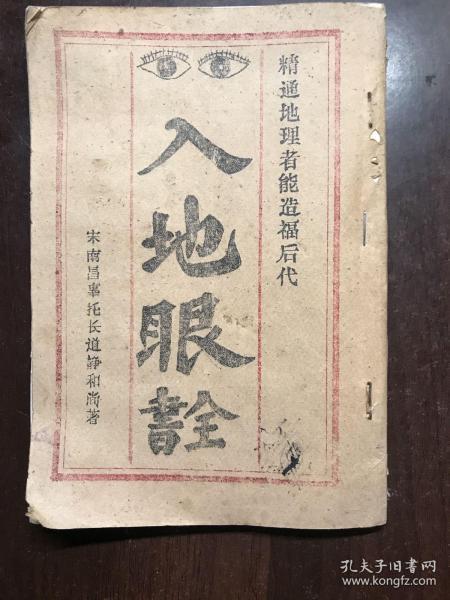 精通地理者能造福后代
入地眼全書
宋南昌辜托长道静和尚著
孔夫子旧书网
www.kongfz.com